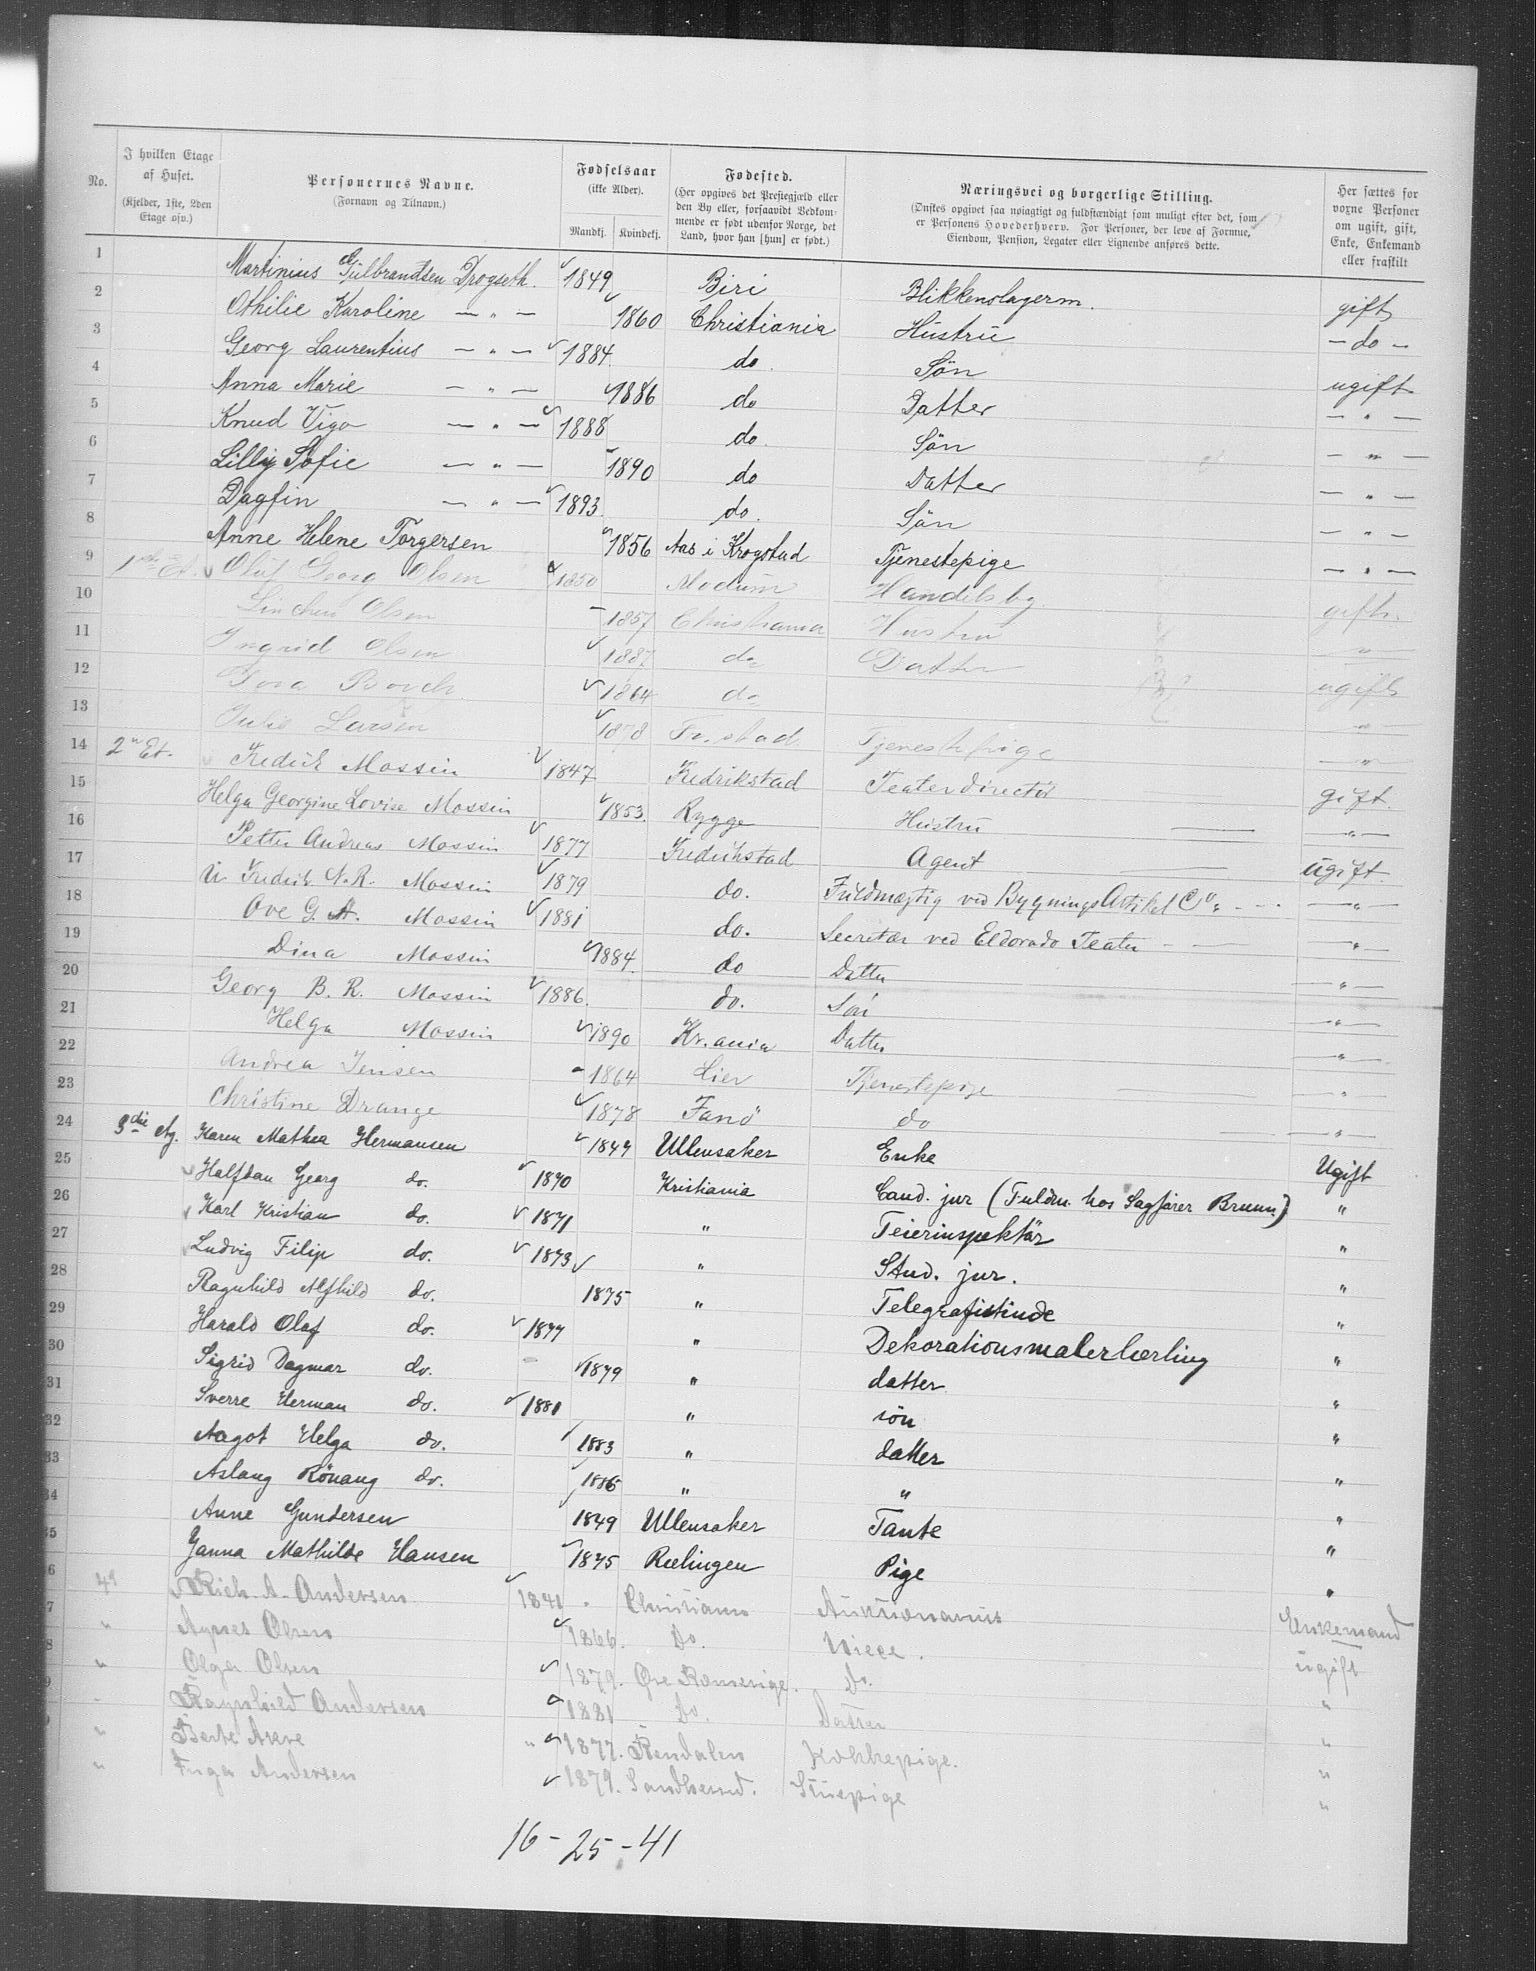 No.	I hvilken Etage af Huset. (Kjelder, 1ste, 2den Etage osv.)	Personernes Navne. (Fornavn og Tilnavn.)	Fødselsaar (ikke Alder). Mandkj. Kvindekj.	Fødested. (Her opgives det Prestegjæld eller den By eller, forsaavidt Vedkommende er født udenfor Norge, det Land, hvor han [hun] er født.)	Næringsvei og borgerlige Stilling. (Ønskes opgivet saa nøiagtigt og fuldstændigt som muligt efter det, som er Personens Hovederhverv. For Personer, der leve af Formue, Eiendom, Pension, Legater eller Lignende anføres dette.	Her sættes for voxne Personer om ugift, gift, Enke, Enkemand eller fraskilt
1 Martinius Gulbrandsen Drogseth. 1849 Biri Blikkenslagerm. gift
2 Othilie Karoline — „ — 1860 Christiania Hustru — do —
3 Georg Laurentius — „ — 1884 do. Søn ugift
4 Anna Marie — „ — 1886 do Datter — „ —
5 Knud Vigo — „ — 1888 do. Søn — „ —
6 Lilly Sofie — „ — 1890 do Datter — „ —
7 Dagfin — „ — 1893 do. Søn — „ —
8 Anne Helene Torgersen 1856 Aas i Krogstad Tjenestepige — „ —
9 1ste Et. Oluf Georg Olsen 1850 Modum Handelsbg. gift.
10 Olsen 1857 Christiania Hustru „
11 Ingrid Olsen 1887 do Datter ugift
12 Tova Borch. 1864 do „
13 Julie Larsen 1878 Fr.stad Tjenestepige „
14 2n Et. Fredrik Mossin 1847 Fredrikstad Teaterdirectør gift.
15 Helga Georgine Lovise Mossin 1853. Rygge Hustru — „ —
16 Petter Andreas Mossin 1877 Fredrikstad Agent ugift.
17 Fredrik N. R. Mossin 1879 do. Fuldmægtig ved Bygnings Artikel Co. — „ —
18 Ove G. A. Mossin 1881 do. Secretær ved Eldorado Teater — „ —
19 Dina Mossin 1884. do Datter — „ —
20 Georg B. R. Mossin 1886. do. Søn — „ —
21 Helga Mossin 1890 Kr.ania Datter — „ —
22 Andrea Jensen 1864 Lier Tjenestepige „
23 Christine Drange 1878 Fanø do — „ —
24 3die Etg. Karen Mathea Hermansen 1849 Ullensaker Enke Ugift
25 Halfdan Georg do. 1870 Kristiania Cand. jur (Fuldm. hos Sagfører Bruun.) „
26 Karl Kristian do. 1871 „ Feierinspektør „
27 Ludvig Filip do. 1873 „ Stud. jur. „
28 Ragnhild Alfhild do. 1875 „ Telegrafistinde „
29 Harald Olaf do. 1877 „ Dekorationsmalerlærling „
30 Sigrid Dagmar do. 1879 „ datter „
31 Sverre Herman do. 1881 „ søn „
32 Aagot Helga do. 1883 „ datter „
33 Aslaug Rønaug do. 1886 „ „ „
34 Anne Gundersen 1849 Ullensaker Tante „
35 Janna Mathilde Hansen 1875 Rælingen Pige „
6 4d Rich. A. Andersen 1841 Christiania Auktionarius Enkemand
7 „ Agnes Olsen 1866. Do. Niece. ugift
8 „ Olga Olsen 1879. Øvre Romerige. Do. „
9 Ragnhild Andersen 1881 Do. Datter „
„ Berte Akre 1877. Rendalen Kokkepige. „
„ Inga Andersen 1879. Sandherred. Stuepige „
16 - 25 - 41